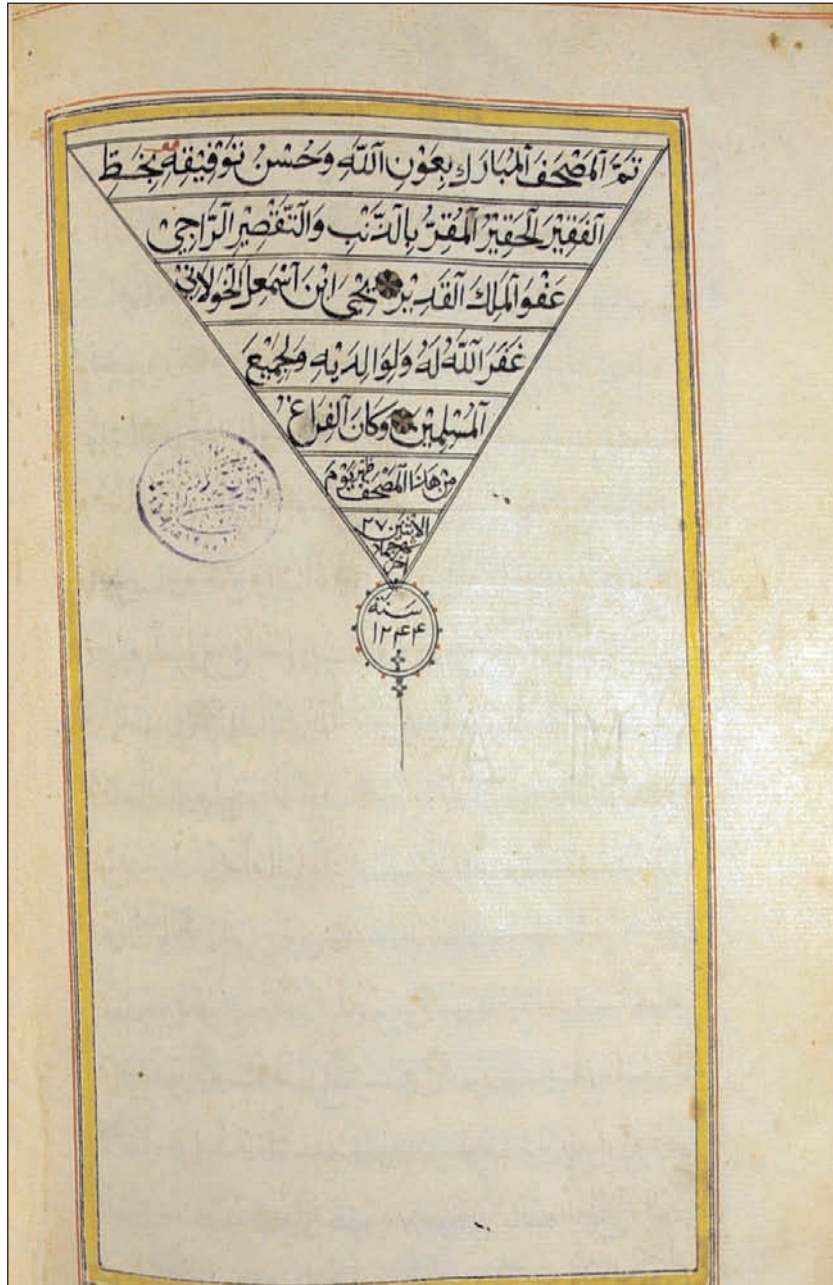 تَمَّ ٱلمَصْحَفُ ٱلمُبَارَك بِعَوْنِ ٱللَّهِ وَحُسْنِ تَوْفِيقِهِ بِخَطِّ
ٱلفَقِيْرِ ٱلحَقِيْرِ ٱلمُقِرُّ بِٱلذَّنْبِ وَٱلتَّقْصِيْرِ ٱلرَّاجِي
عَفْوَ ٱلمَلِكِ ٱلقَدِيْرِ يَحْيَى ابْن ٱسْمٰعِل ٱلخَوْلَانِيْ
غَفَرَ ٱللَّهُ لَهُ وَلِوَالِدَيْهِ وَلِجَمِيْعِ
ٱلمُسْلِمِيْن وَكَانَ ٱلفَرَاغ
مِنْ هٰذَا ٱلمَصْحَفِ ظهر يَوْم
الاثنين ٢٧
شهر جماد
آخر
سَنَة
١٢٤٤